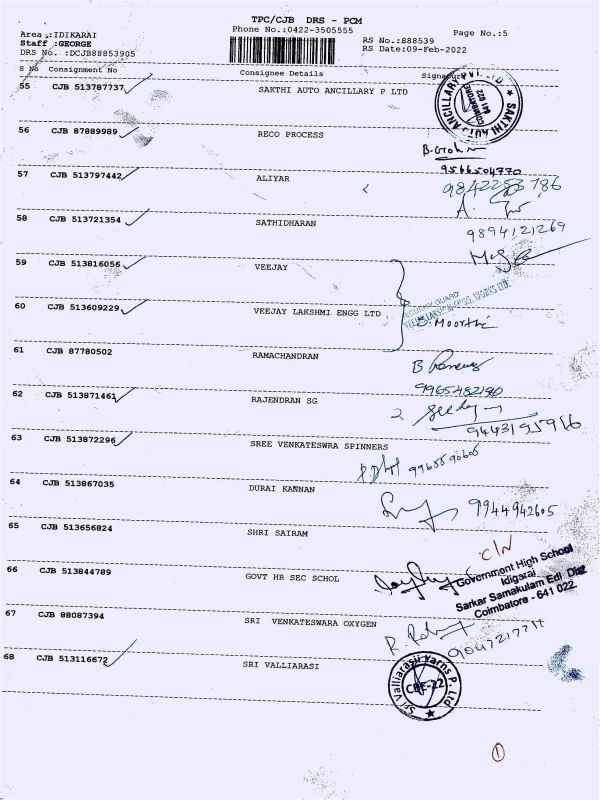 TPC/CJB DRS - PCM
Phone No.:0422-3505555
Page No.:5
Area :IDIKARAI
Staff :GEORGE
DRS No. :DCJB88853905
RS No.:888539
RS Date:09-Feb-2022
S No Consignment No Consignee Details Signature
55 CJB 513787737 SAKTHI AUTO ANCILLARY P LTD
SAKTHI AUTO ANCILLARY PVT. LTD
COIMBATORE
641 022
56 CJB 87889989 RECO PROCESS
9566504770
57 CJB 513797442 ALIYAR
58 CJB 513721354 SATHIDHARAN
9894121269
59 CJB 513816056 VEEJAY
SECURITY GUARD
60 CJB 513609229 VEEJAY LAKSHMI ENGG LTD
Moorthi
61 CJB 87780502 RAMACHANDRAN
9965482190
62 CJB 513871461 RAJENDRAN SG
63 CJB 513872296 SREE VENKATESWRA SPINNERS
64 CJB 513867035 DURAI KANNAN
9944942605
65 CJB 513656824 SHRI SAIRAM
66 CJB 513844789 GOVT HR SEC SCHOL
Government High School
Idigarai
Sarkar Samakulam Edl Dist
Coimbatore - 641 022
67 CJB 88087394 SRI VENKATESWARA OXYGEN
68 CJB 513116672 SRI VALLIARASI
Sri Valliarasi Yarns P. Ltd
CBE-22
1